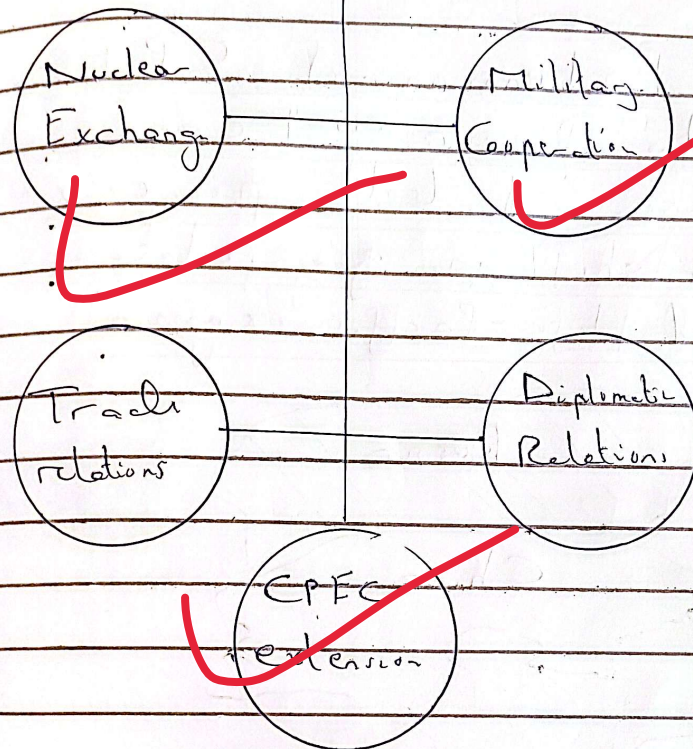 Nuclear
Exchange
Military
Cooperation
Trade
relations
Diplomatic
Relations
CPEC
extension